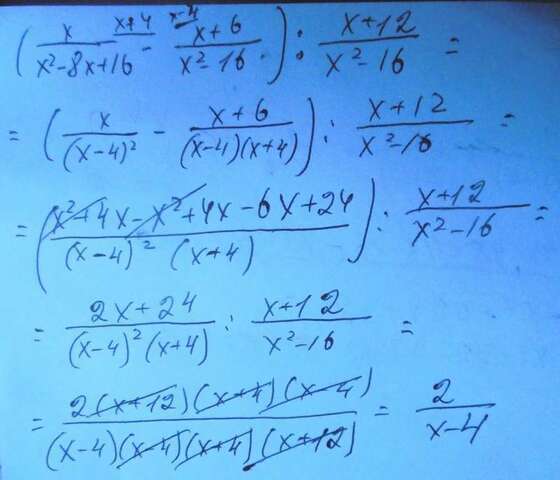 (x/(x²-8x+16) ^(x+4) - ^(x-4) (x+6)/(x²-16)) : (x+12)/(x²-16) =
= (x/(x-4)² - (x+6)/((x-4)(x+4))) : (x+12)/(x²-16) =
= ((x²+4x-x²+4x-6x+24)/((x-4)²(x+4))) : (x+12)/(x²-16) =
= (2x+24)/((x-4)²(x+4)) : (x+12)/(x²-16) =
= (2(x+12)(x+4)(x-4))/((x-4)(x-4)(x+4)(x+12)) = 2/(x-4)